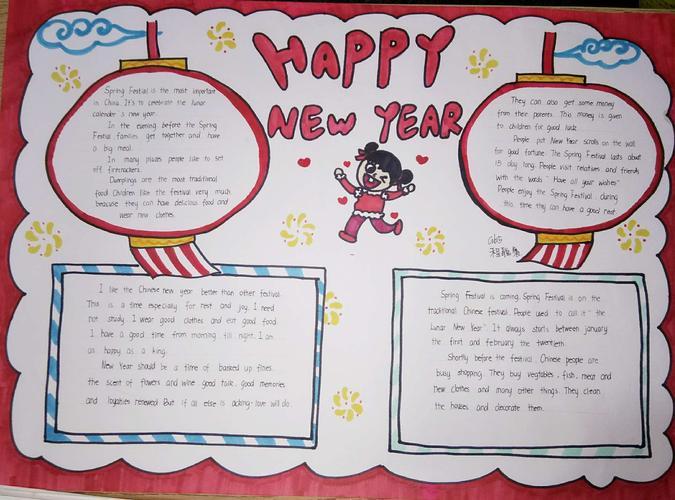 HAPPY
NEW YEAR
Spring Festival is the most important
in China. It's to celebrate the lunar
calender's new year.
In the evening before the Spring
Festival families get together and have
a big meal.
In many places people like to set
off firecrackers.
Dumplings are the most traditional
food. Children like the festival very much,
because they can have delicious food and
wear new clothes.
They can also get some money
from their parents. This money is given
to children for good luck.
People put New Year scrolls on the wall
for good fortune. The Spring Festival lasts about
15 day long. People visit relatives and friends
with the words "Have all your wishes".
People enjoy the Spring Festival, during
this time they can have a good rest.
I like the Chinese new year better than other festival.
This is a time especially for rest and joy. I need
not study. I wear good clothes and eat good food.
I have a good time from morning till night. I am
as happy as a king.
New Year should be a time of banked up fires,
the scent of flowers and wine good talk, good memories
and loyalties renewed But if all else is acking-love will do.
Spring Festival is coming. Spring Festival is on the
traditional Chinese festival. People used to call it "the
lunar New Year". It always starts between january
the first and february the twentieth.
Shortly before the festival, Chinese people are
busy shopping. They buy vegetables, fish, meat and
new clothes and many other things. They clean
the houses and decorate them.